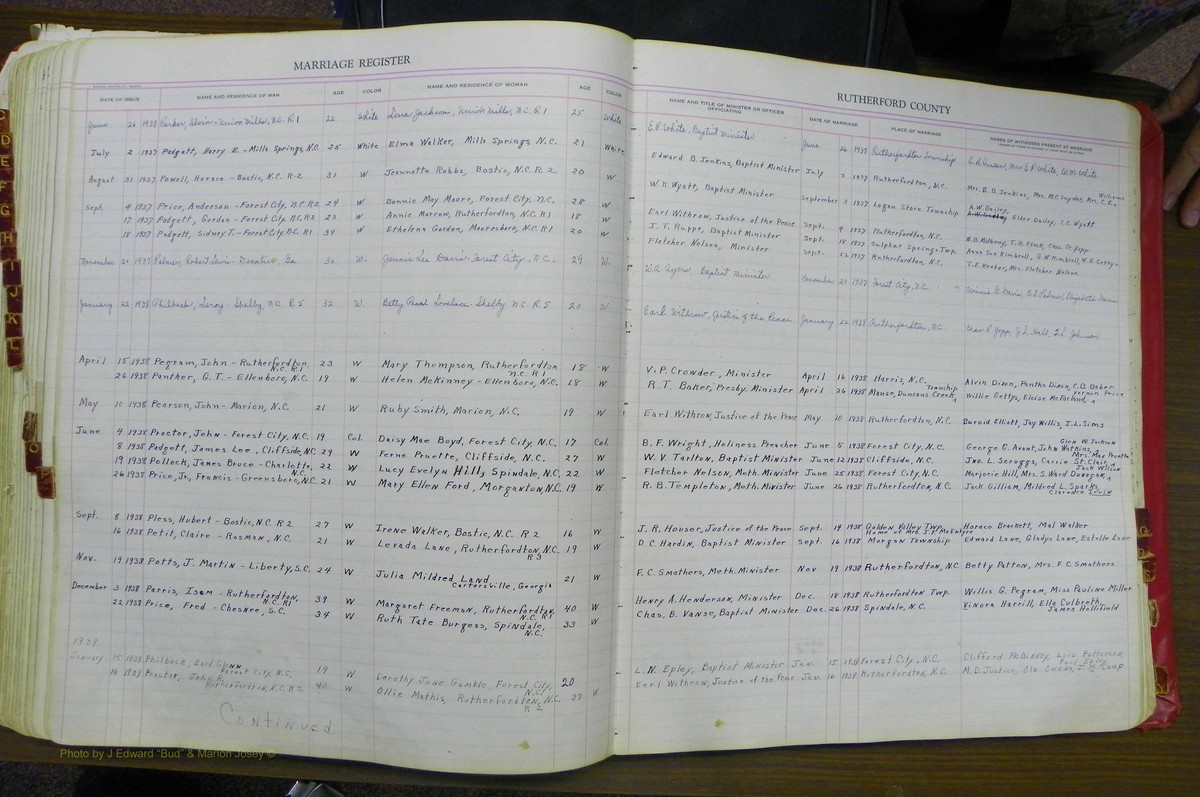 MARRIAGE REGISTER
RUTHERFORD COUNTY
DATE OF ISSUE NAME AND RESIDENCE OF MAN AGE COLOR NAME AND RESIDENCE OF WOMAN AGE COLOR NAME AND TITLE OF MINISTER OR OFFICER OFFICIATING DATE OF MARRIAGE PLACE OF MARRIAGE NAMES OF WITNESSES PRESENT AT MARRIAGE
June 26 1937 Parker, Alvin - Union Mills, N.C. R 1 22 White Lena Jackson, Union Mills, N.C. R 1 25 White E.P. White, Baptist Minister June 26 1937 Rutherfordton Township
July 2 1937 Padgett, Harry E - Mills Springs, N.C. 25 White Elma Walker, Mills Springs, N.C. 21 White Edward B. Jenkins, Baptist Minister July 3 1937 Rutherfordton, N.C. Mrs. E.B. Jenkins, Mrs. M.C. Snyder, Mrs. C.B. Williams
August 31 1937 Powell, Horace - Bostic, N.C. R 2 31 W Jeannette Robbs, Bostic, N.C. R 2 20 W W.K. Wyatt, Baptist Minister September 3 1937 Logan Store Township A.W. Dailey, Ellen Dailey, C.C. Wyatt
Sept. 4 1937 Price, Anderson - Forest City, N.C. R 2 24 W Bonnie May Moore, Forest City, N.C. 28 W Earl Withrow, Justice of the Peace Sept. 4 1937 Rutherfordton, N.C.
17 1937 Padgett, Gordon - Forest City, N.C. R 2 23 W Annie Marrow, Rutherfordton, N.C. R 1 18 W J.T. Ruppe, Baptist Minister Sept. 18 1937 Sulphur Springs Twp. Anna Sue Kimbrell, G.W. Kimbrell,
18 1937 Padgett, Sidney T. - Forest City, N.C. R 1 39 W Ethelena Gordon, Mooresboro, N.C. R 1 20 W Fletcher Nelson, Minister Sept. 22 1937 Rutherfordton, N.C. T.E. Keeter, Mrs. Fletcher Nelson
November 20 1937 Palmer, Robert Lewis - Decatur, Ga. 30 W. Jennie Lee Davis Forest City, N.C. 29 W. W.A. Ayers, Baptist Minister November 21 1937 Forest City, N.C. Winnie G. Davis, B.D. Palmer, Elizabeth Davis
January 22 1938 Philbeck, Leroy - Shelby, N.C. R 5 32 W. Betty Pearl Lovelace - Shelby, N.C. R 5 20 W. Earl Withrow, Justice of the Peace January 22 1938 Rutherfordton, N.C.
April 15 1938 Pegram, John - Rutherfordton, N.C. R 1 23 W Mary Thompson, Rutherfordton, N.C. R 1 18 W V.P. Crowder, Minister April 16 1938 Harris, N.C. Alvin Dixon, Pantha Dixon, C.B. Baber
26 1938 Panther, G.T. - Ellenboro, N.C. 19 W Helen McKinney - Ellenboro, N.C. 18 W R.T. Baker, Presby. Minister April 26 1938 Manse, Duncans Creek Township Willie Gettys, Eloise McFarland, Vernon Price
May 10 1938 Pearson, John - Marion, N.C. 21 W Ruby Smith, Marion, N.C. 19 W Earl Withrow, Justice of the Peace May 10 1938 Rutherfordton, N.C. Buroid Elliott, Jay Willis, J.L. Sims
June 4 1938 Proctor, John - Forest City, N.C. 19 Col. Daisy Mae Boyd, Forest City, N.C. 17 Col. B.F. Wright, Holiness Preacher June 5 1938 Forest City, N.C. George G. Avant, John Watkins, Glen W. Jackson
8 1938 Padgett, James Lee, Cliffside, N.C. 29 W Ferne Pruette, Cliffside, N.C. 27 W W.V. Tarlton, Baptist Minister June 12 1938 Cliffside, N.C. Jno. L. Scruggs, Carrie St. Clair, Mrs. May Pruette
19 1938 Pollock, James Bruce - Charlotte, N.C. 22 W Lucy Evelyn Hill, Spindale, N.C. 22 W Fletcher Nelson, Meth. Minister June 25 1938 Forest City, N.C. Marjorie Hill, Mrs. S. Ward Dunegan, Jack Wilson
26 1938 Price, Jr., Francis - Greensboro, N.C. 21 W Mary Ellen Ford, Morganton, N.C. 19 W R.B. Templeton, Meth. Minister June 26 1938 Rutherfordton, N.C. Jack Gilliam, Mildred L. Sparks, Clarence
Sept. 8 1938 Pless, Hubert - Bostic, N.C. R 2 27 W Irene Walker, Bostic, N.C. R 2 16 W J.R. Houser, Justice of the Peace Sept. 14 1938 Golden Valley Twp. Horace Brackett, Mal Walker
16 1938 Petit, Claire - Rosman, N.C. 21 W Levada Lane, Rutherfordton, N.C. R 3 19 W D.C. Hardin, Baptist Minister Sept. 16 1938 Home of Mrs. J.P. McEntyre Morgan Township Edward Lane, Gladys Lane, Estelle Lane
Nov. 19 1938 Potts, J. Martin - Liberty, S.C. 24 W Julia Mildred Land, Cartersville, Georgia 21 W F.C. Smathers, Meth. Minister Nov 19 1938 Rutherfordton, N.C. Betty Patton, Mrs. F.C. Smathers
December 3 1938 Parris, Isom - Rutherfordton, N.C. R 1 39 W Margaret Freeman, Rutherfordton, N.C. R 1 40 W Henry A. Henderson, Minister Dec. 18 1938 Rutherfordton Twp. Willis G. Pegram, Miss Pauline Miller
22 1938 Price, Fred - Chesnee, S.C. 34 W Ruth Tate Burgess, Spindale, N.C. 33 W Chas. B. Vanse, Baptist Minister Dec. 26 1938 Spindale, N.C. Vinora Harrill, Ella Culbreth, James Hollifield
1939
January 15 1938 Philbeck, Earl Glenn Forest City, N.C. 19 W Dorothy June Gamble, Forest City, N.C. 20 L.N. Epley, Baptist Minister Jan. 15 1938 Forest City, N.C. Clifford McKinney, Lois Patterson,
16 1939 Proctor, John R. Rutherfordton, N.C. R 2 40 W Ollie Mathis, Rutherfordton, N.C. R 2 37 W Earl Withrow, Justice of the Peace Jan. 16 1938 Rutherfordton, N.C. M.D. Justice, Ola Owens, J.G. Camp
Continued
Photo by J Edward "Bud" & Marion Josey ©